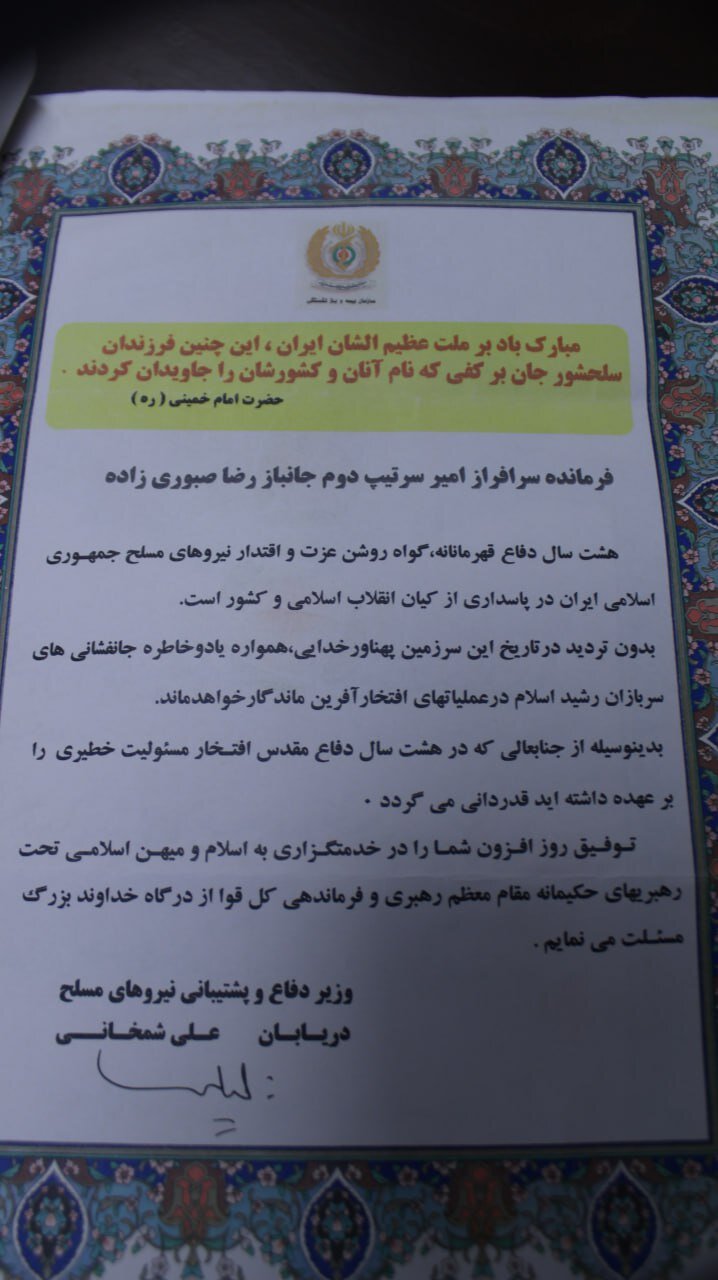 سازمان بیمه و بازنشستگی
مبارک باد بر ملت عظیم الشان ایران ، این چنین فرزندان
سلحشور جان بر کفی که نام آنان و کشورشان را جاویدان کردند .
حضرت امام خمینی ( ره )
فرمانده سرافراز امیر سرتیپ دوم جانباز رضا صبوری زاده
هشت سال دفاع قهرمانانه،گواه روشن عزت و اقتدار نیروهای مسلح جمهـوری
اسلامی ایران در پاسداری از کیان انقلاب اسلامی و کشور است.
بدون تردید درتاریخ این سرزمین پهناورخدایی،همواره یادوخاطره جانفشانی های
سربازان رشید اسلام درعملیاتهای افتخارآفرین ماندگارخواهدماند.
بدینوسیله از جنابعالی که در هشت سال دفاع مقدس افتـخار مسئولیت خطیری را
بر عهده داشته اید قدردانی می گردد ۰
تـوفیق روز افزون شمـا را در خدمتگـزاری به اسلام و میهـن اسلامـی تحت
رهبریهای حکیمانه مقام معظم رهبری و فرماندهی کل قوا از درگاه خداوند بزرگ
مسئـلت می نمایم .
وزیر دفاع و پشتیبانی نیروهای مسلح
دریـابـان عـلی شمخـانـــی